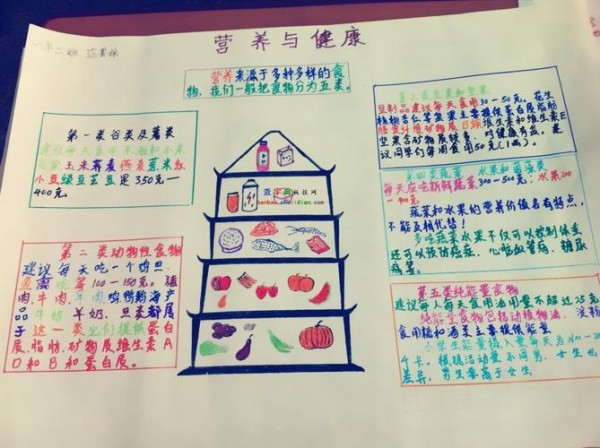 营养与健康
一年二班
营养来源于多种多样的食
物,我们一般把食物分为五类。
第一类谷类及薯类
玉米荞麦燕麦薏米红
小豆绿豆芸豆是350克一
400克。
第二类动物性食物
建议每天吃一个鸡旦,
鱼禽
等100一150克。猪
肉,牛肉,羊肉鸡鸭鹅海产
品牛奶羊奶,旦类都属
于这一类它们提供蛋白
质,脂脂,矿物质维生素A
D和B和蛋白质。
第三类豆类和坚果
豆制品建议每天食用30一50克,花生
核桃杏仁等坚果主要提供蛋白质脂肪
膳食纤维矿物质B族维生素和维生素E
坚果含矿物质较多,吗健康有益。是
议同学们每周食用50克(一两)。
第四类蔬菜 水果和菌藻类
每天应吃新鲜蔬菜300一500克;水果200
一400克
蔬菜和水果的营养价值各有特点,
不能互相代替!
多吃蔬菜水果不仅可以控制体重
还可以预防癌症,心脑血管病,糖尿
病等。
第五类纯能量食物
建议每人每天食用油用量不超过25克
纯能量食物包括动植物油,淀粉
食用糖和酒类主要提供能量
小学生能量摄入量每天为
个卡。根据活动量不同男、女生也
差异,男生要高于女生
查字典板报网
banbao.chazidian.com